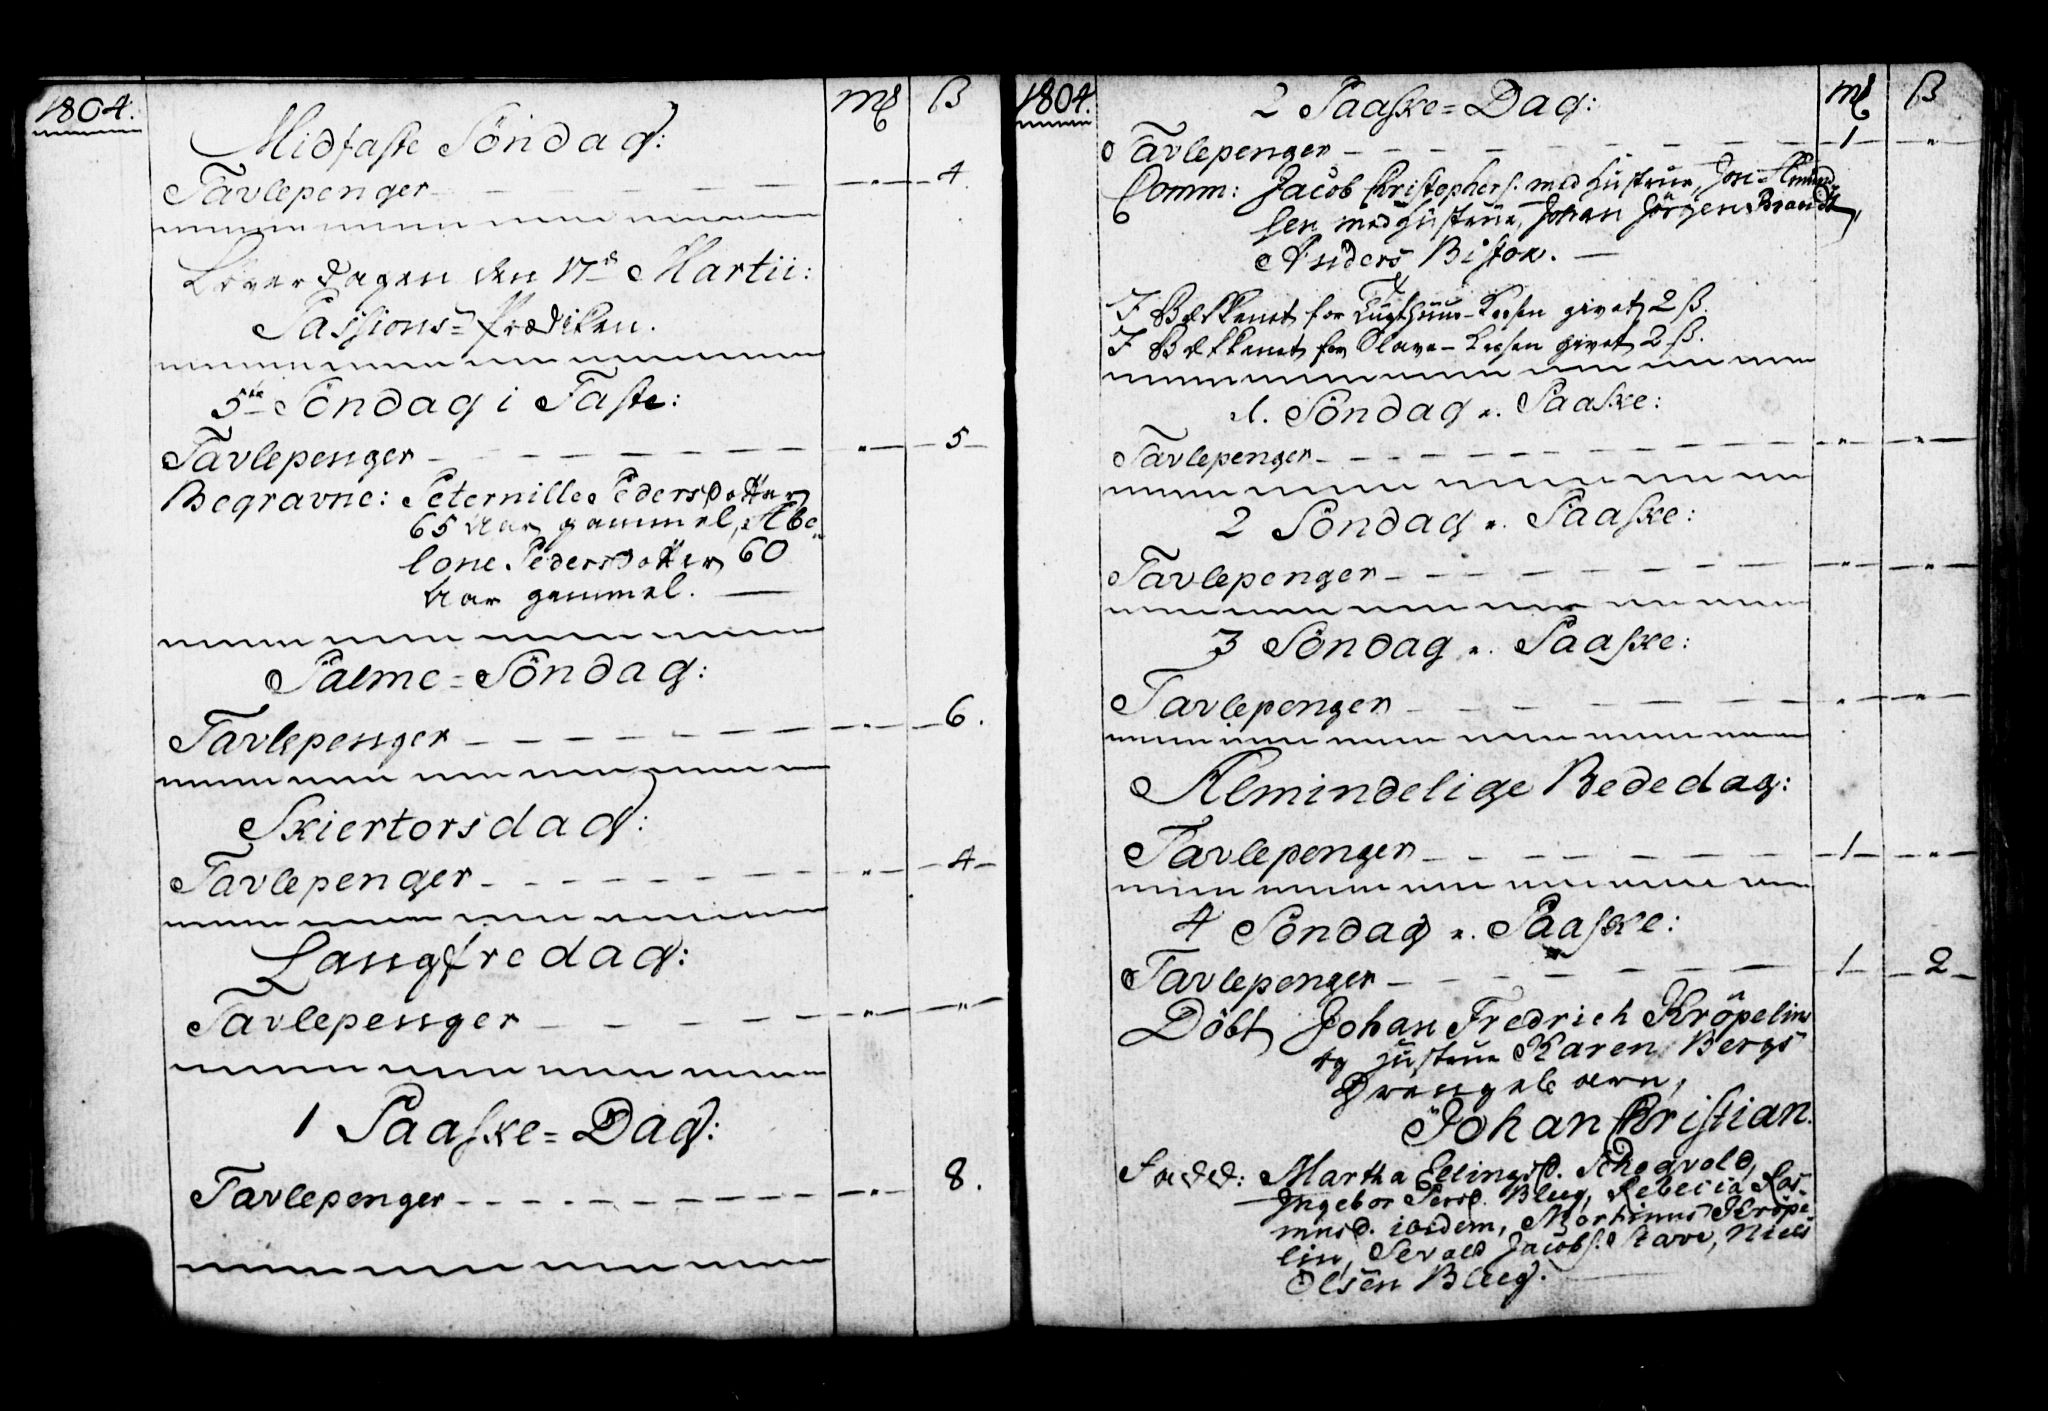 1804. mk ß
Midfaste Söndag:
Tavlepenger — " — 4
Löverdagen den 17de Martii:
Passions-Prædiken.
5te Söndag i Faste:
Tavlepenger — " — 5
Begravne: Peternille Pedersdatter
65 Aar gammel, Abe-
lone Pedersdatter 60
Aar gammel. —
Palme-Söndag:
Tavlepenger — " — 6.
Skiertorsdag:
Tavlepenger — " — 4
Langfredag:
Tavlepenger — " — "
1 Paaske-Dag:
Tavlepenger — " — 8.
1804. mk ß
2 Paaske-Dag:
Tavlepenger — 1 — "
Comm: Jacob Christophers. med Hustrue,
sen med Hustrue, Johan Jörgen Brandt,
Anders Biston. —
I Bækkenet for Tugthuus-Lemmen givet 2 ß.
I Bækkenet for Slave- givet 2 ß.
1. Söndag e. Paaske:
Tavlepenger — " — "
2 Söndag e. Paaske:
Tavlepenger — " — "
3 Söndag e. Paaske:
Tavlepenger — " — "
Almindelige Bededag:
Tavlepenger — 1 — "
4 Söndag e. Paaske:
Tavlepenger — 1 — 2
Döbt Johan Fredrich Kröpelin
og Hustrue Karen Bergs
Drengebarn,
Johan Christian.
Fadd: Martha Ellingsd. Schogvold,
Ingebor Persd. Bleeg, Rebecca Ras-
musd. ibidem, Mortinus Kröpe-
lin, Sevald Jacobs. Stave, Niels
Olsen Bleeg.